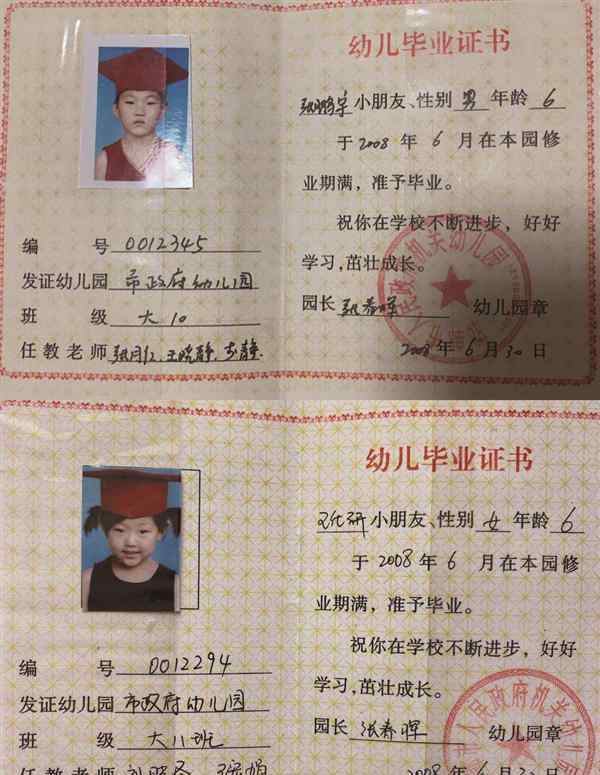 幼儿毕业证书
小朋友、性别 男 年龄 6
于2008 年 6 月在本园修
业期满，准予毕业。
祝你在学校不断进步，好好
学习，茁壮成长。
园长 张春晖 幼儿园章
2008 年 6 月 30 日
编 号 0012345
发证幼儿园 市政府幼儿园
班 级 大10
任教老师 张月红.王晓静.
人民政府机关幼儿园
幼儿毕业证书
小朋友、性别 女 年龄 6
于 2008 年 6 月在本园修
业期满，准予毕业。
祝你在学校不断进步，好好
学习，茁壮成长。
园长 张春晖 幼儿园章
2008 年 6 月 30 日
编 号 0012294
发证幼儿园 市政府幼儿园
班 级 大八班
任教老师
市人民政府机关幼儿园